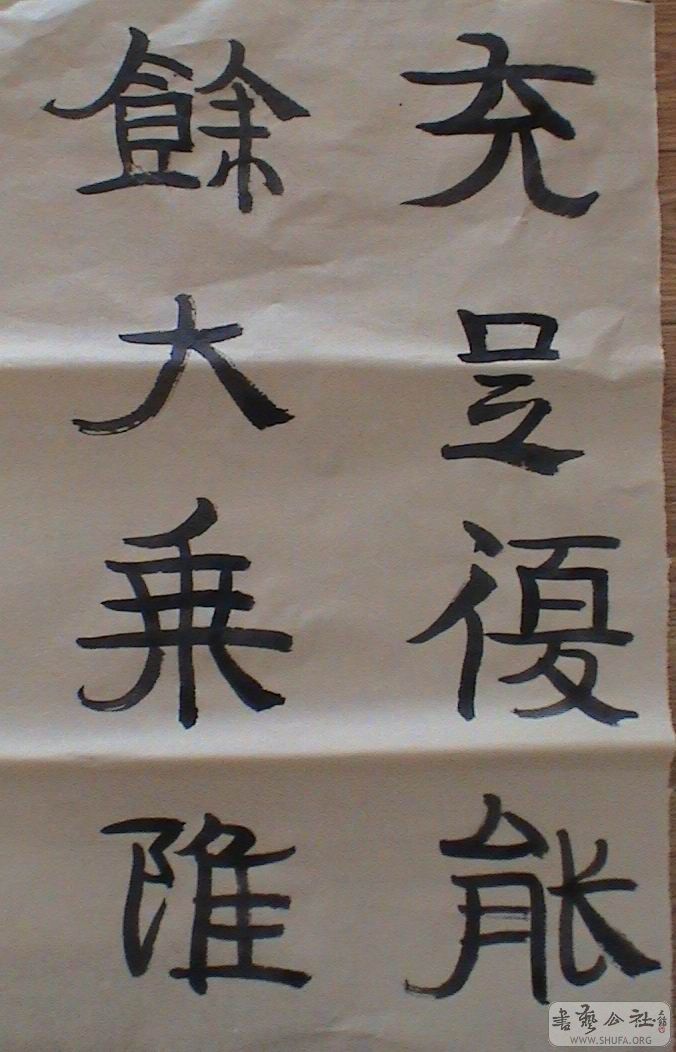 充足復能
餘大乗陮
書藝公社
WWW.SHUFA.ORG